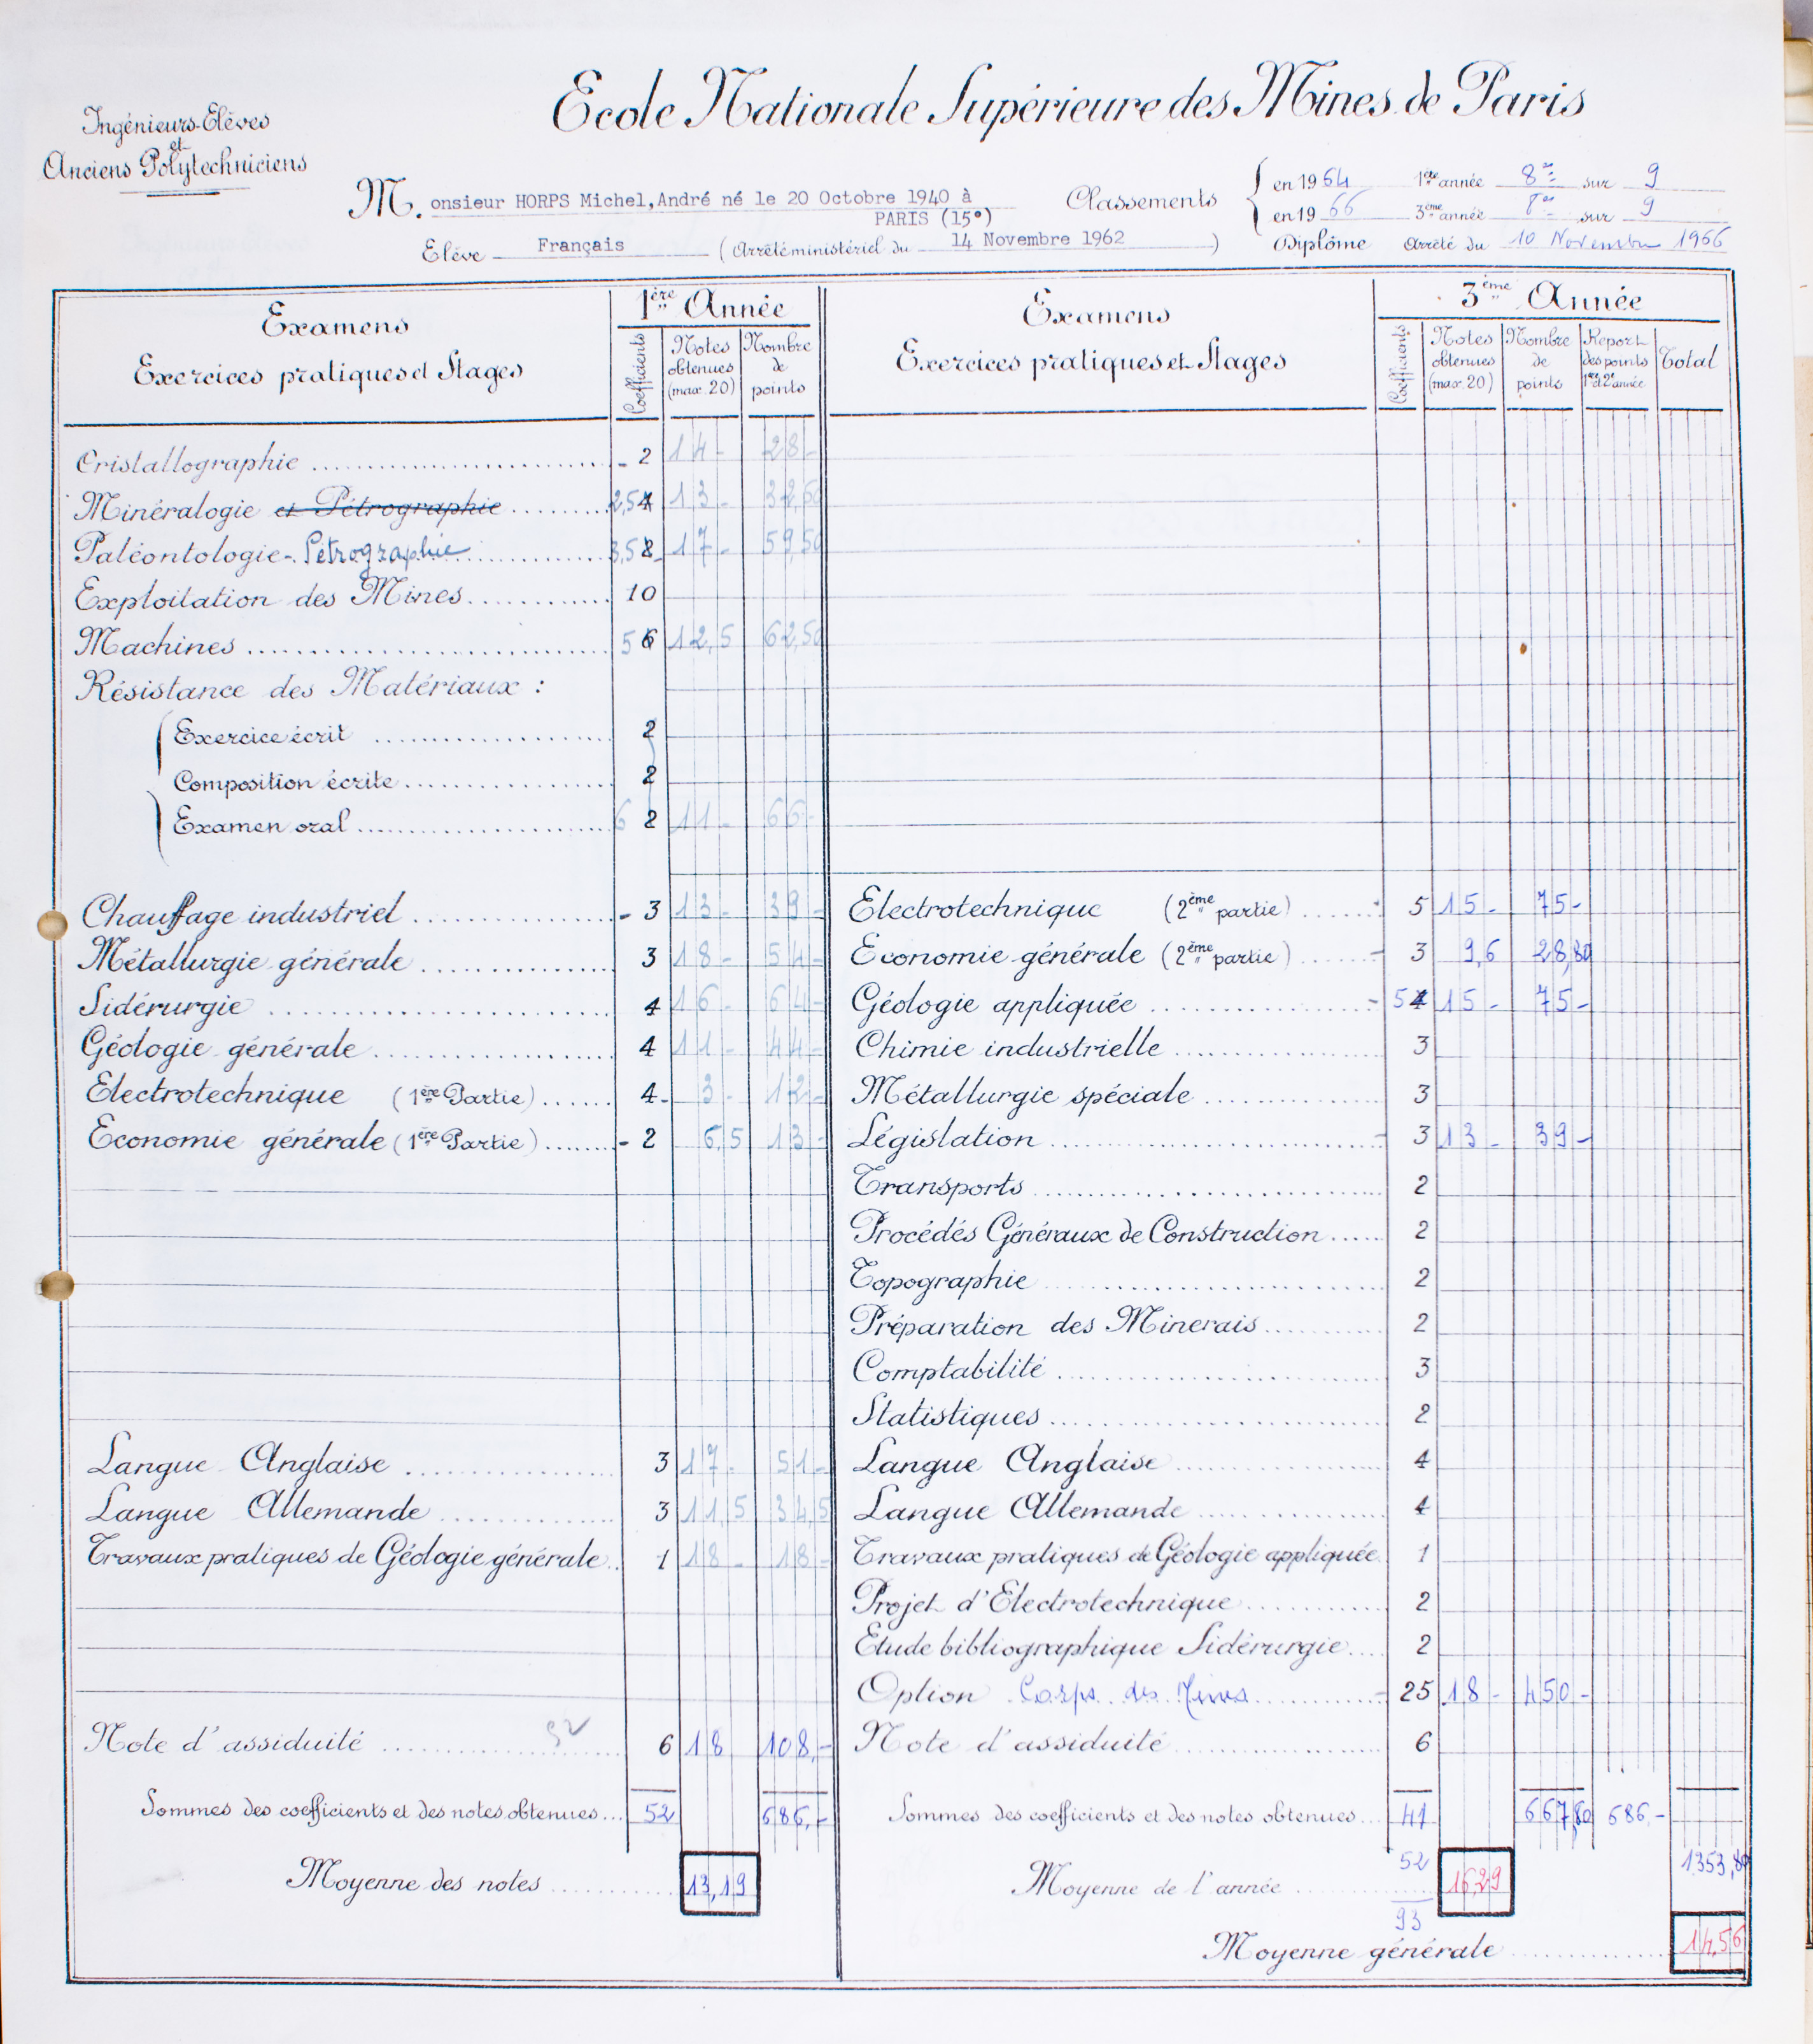 Ecole Nationale Supérieure des Mines de Paris
Ingénieurs-Elèves
et
Anciens Polytechniciens
M. onsieur HORPS Michel,André né le 20 Octobre 1940 à
PARIS (15°)
Elève Français (Arrêté ministériel du 14 Novembre 1962)
Classements
en 1964 1ère année 8e sur 9
en 1966 3ème année sur 9
Diplôme Arrêté du 10 Novembre 1966
Examens
Exercices pratiques et Stages
1ère Année
Coefficients
Notes obtenues (max. 20)
Nombre de points
Cristallographie - 2 14 - 28 -
Minéralogie et Pétrographie 2,5 4 13 - 32,50
Paléontologie - Pétrographie 3,5 2 17 - 59,50
Exploitation des Mines 10
Machines 5 6 12,5 62,50
Résistance des Matériaux :
Exercice écrit 2
Composition écrite 2
Examen oral 6 2 11 - 66 -
Chauffage industriel - 3 13 - 39 -
Métallurgie générale 3 18 - 54 -
Sidérurgie 4 16 - 64 -
Géologie générale 4 11 - 44 -
Electrotechnique (1ère Partie) 4 - 3 - 12 -
Economie générale (1ère Partie) - 2 6,5 13 -
Langue Anglaise 3 17 - 51 -
Langue Allemande 3 11,5 34,5
Travaux pratiques de Géologie générale 1 18 - 18 -
52
Note d'assiduité 6 18 108,-
Sommes des coefficients et des notes obtenues... 52 686,-
Moyenne des notes 13,19
Examens
Exercices pratiques et Stages
3ème Année
Coefficients
Notes obtenues (max. 20)
Nombre de points
Report des points 1ère et 2e année
Total
Electrotechnique (2ème partie) 5 15 - 75 -
Economie générale (2ème partie) - 3 9,6 28,80
Géologie appliquée - 5 4 15 - 75 -
Chimie industrielle 3
Métallurgie spéciale 3
Législation - 3 13 - 39 -
Transports 2
Procédés Généraux de Construction 2
Topographie 2
Préparation des Minerais 2
Comptabilité 3
Statistiques 2
Langue Anglaise 4
Langue Allemande 4
Travaux pratiques de Géologie appliquée 1
Projet d'Electrotechnique 2
Etude bibliographique Sidérurgie 2
Option Corps des Mines - 25 18 - 450 -
Note d'assiduité 6
Sommes des coefficients et des notes obtenues 41 667,80 686,-
52 1353,80
Moyenne de l'année 16,29
93
Moyenne générale 14,56